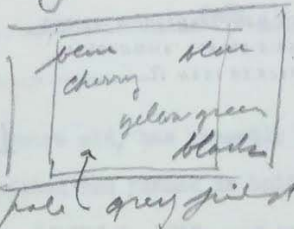 blue blue
cherry
yellow green
black
pale grey